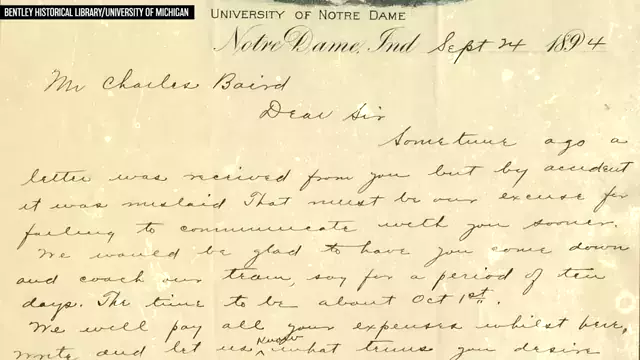 BENTLEY HISTORICAL LIBRARY/UNIVERSITY OF MICHIGAN
UNIVERSITY OF NOTRE DAME
Notre Dame, Ind Sept 24 1894
Mr Charles Baird
Dear Sir
Sometime ago a
letter was received from you but by accident
it was mislaid That must be our excuse for
failing to communicate with you sooner.
We would be glad to have you come down
and coach our team, say for a period of ten
days. The time to be about Oct 1st.
We will pay all your expenses whilst here,
write and let us know what terms you desire